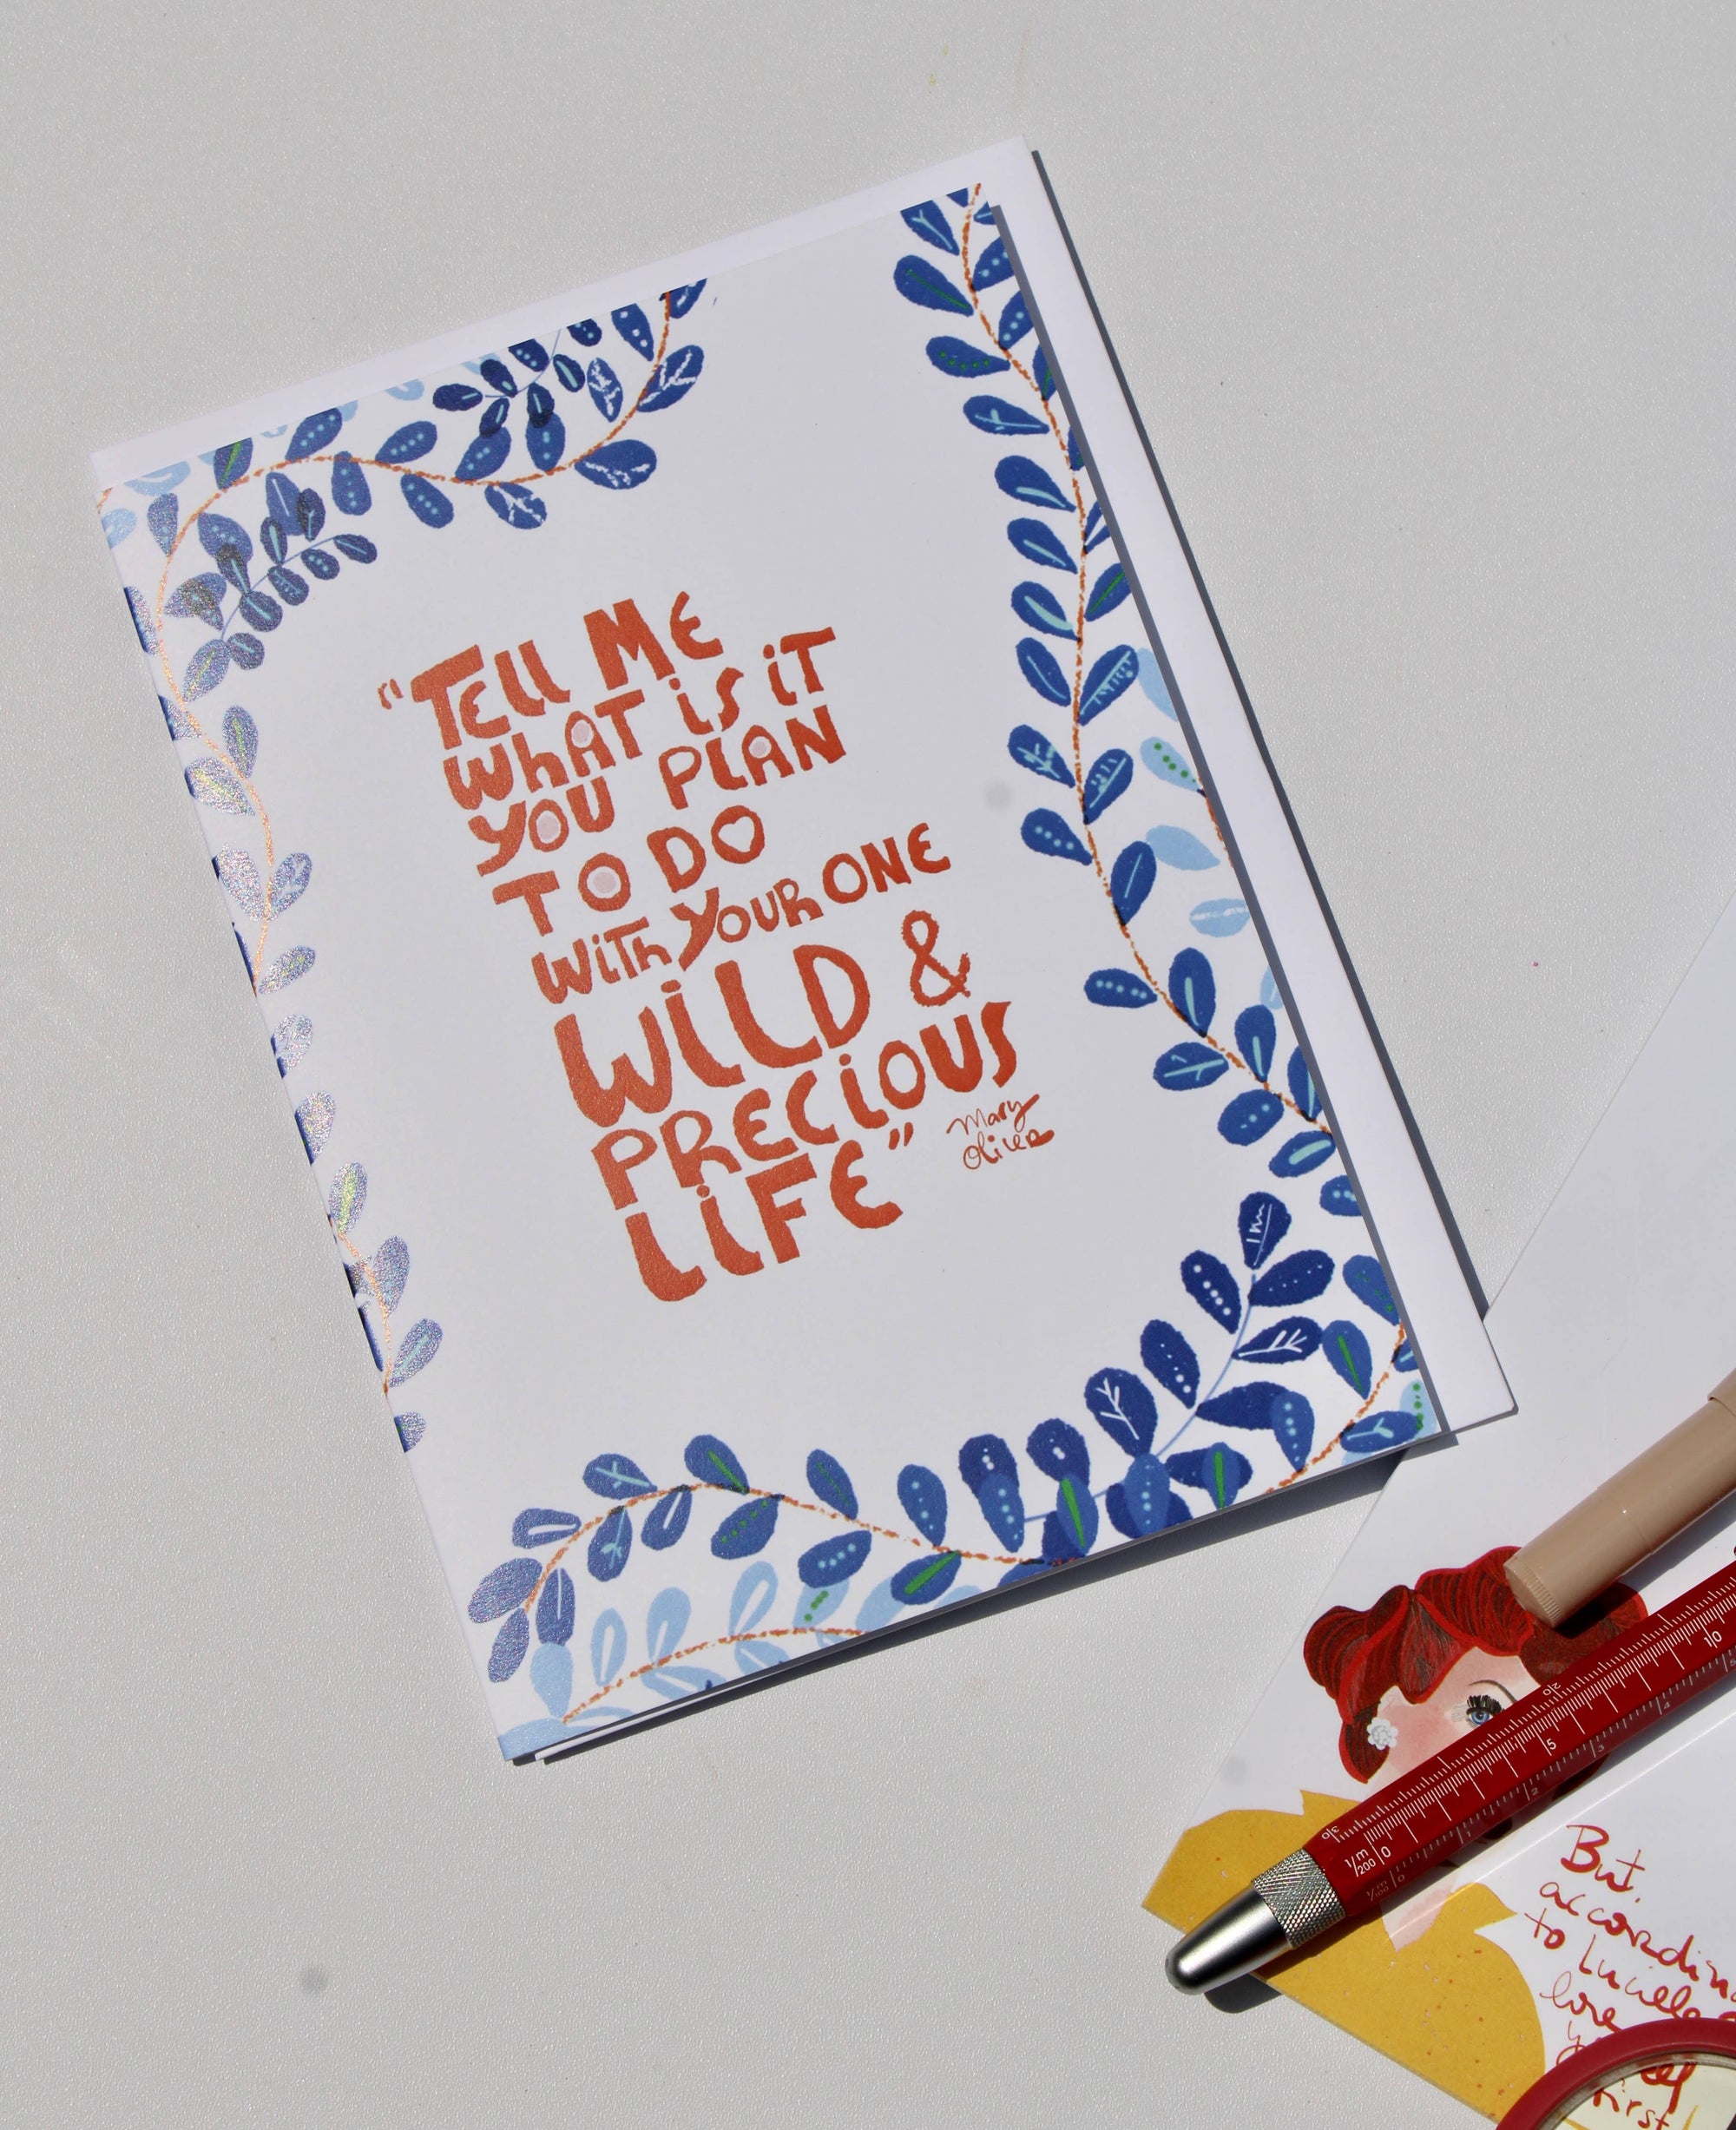 "TELL ME
WHAT iS iT
YOU PLAN
TO DO
WiTh YOUR ONE
WiLD &
PRECiOUS
LiFE"
Mary
Oliver
But,
according
to Lucille
love
first
1/m
200
0
5
10
1/m
100
0
1
2
3
4
5